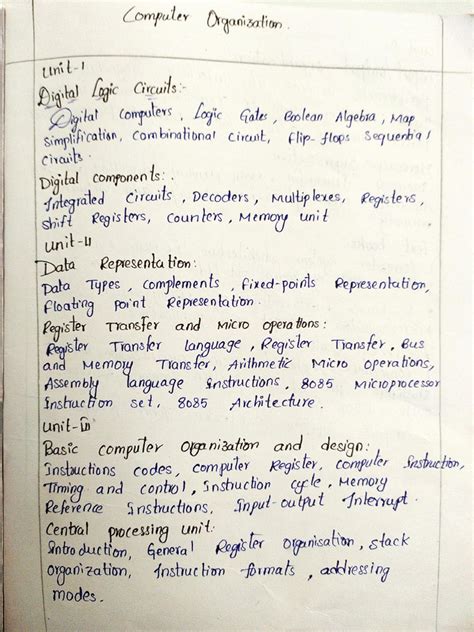 Computer Organisation.
Unit-I
Digital Logic Circuits:-
Digital computers, Logic Gates, Boolean Algebra, Map
simplification, Combinational Circuit, flip-flops Sequential
Circuits.
Digital components:.
Integrated Circuits, Decoders, Multiplexes, Registers,
Shift Registers, Counters, Memory unit
Unit-II
Data Representation:
Data Types, Complements, fixed-points Representation,
Floating point Representation.
Register Transfer and Micro operations:
Register Transfer language, Register Transfer, Bus
and Memory Transfer, Arithmetic Micro operations,
Assembly language Instructions, 8085 Microprocessor
Instruction set, 8085 Architecture.
Unit-III
Basic computer Organization and design:
Instructions codes, computer Register, computer Instruction,
Timing and control, Instruction cycle, Memory
Reference Instructions, Input-output Interrupt.
Central processing unit:
Introduction, General Register Organisation, stack
organization, Instruction formats, addressing
modes.